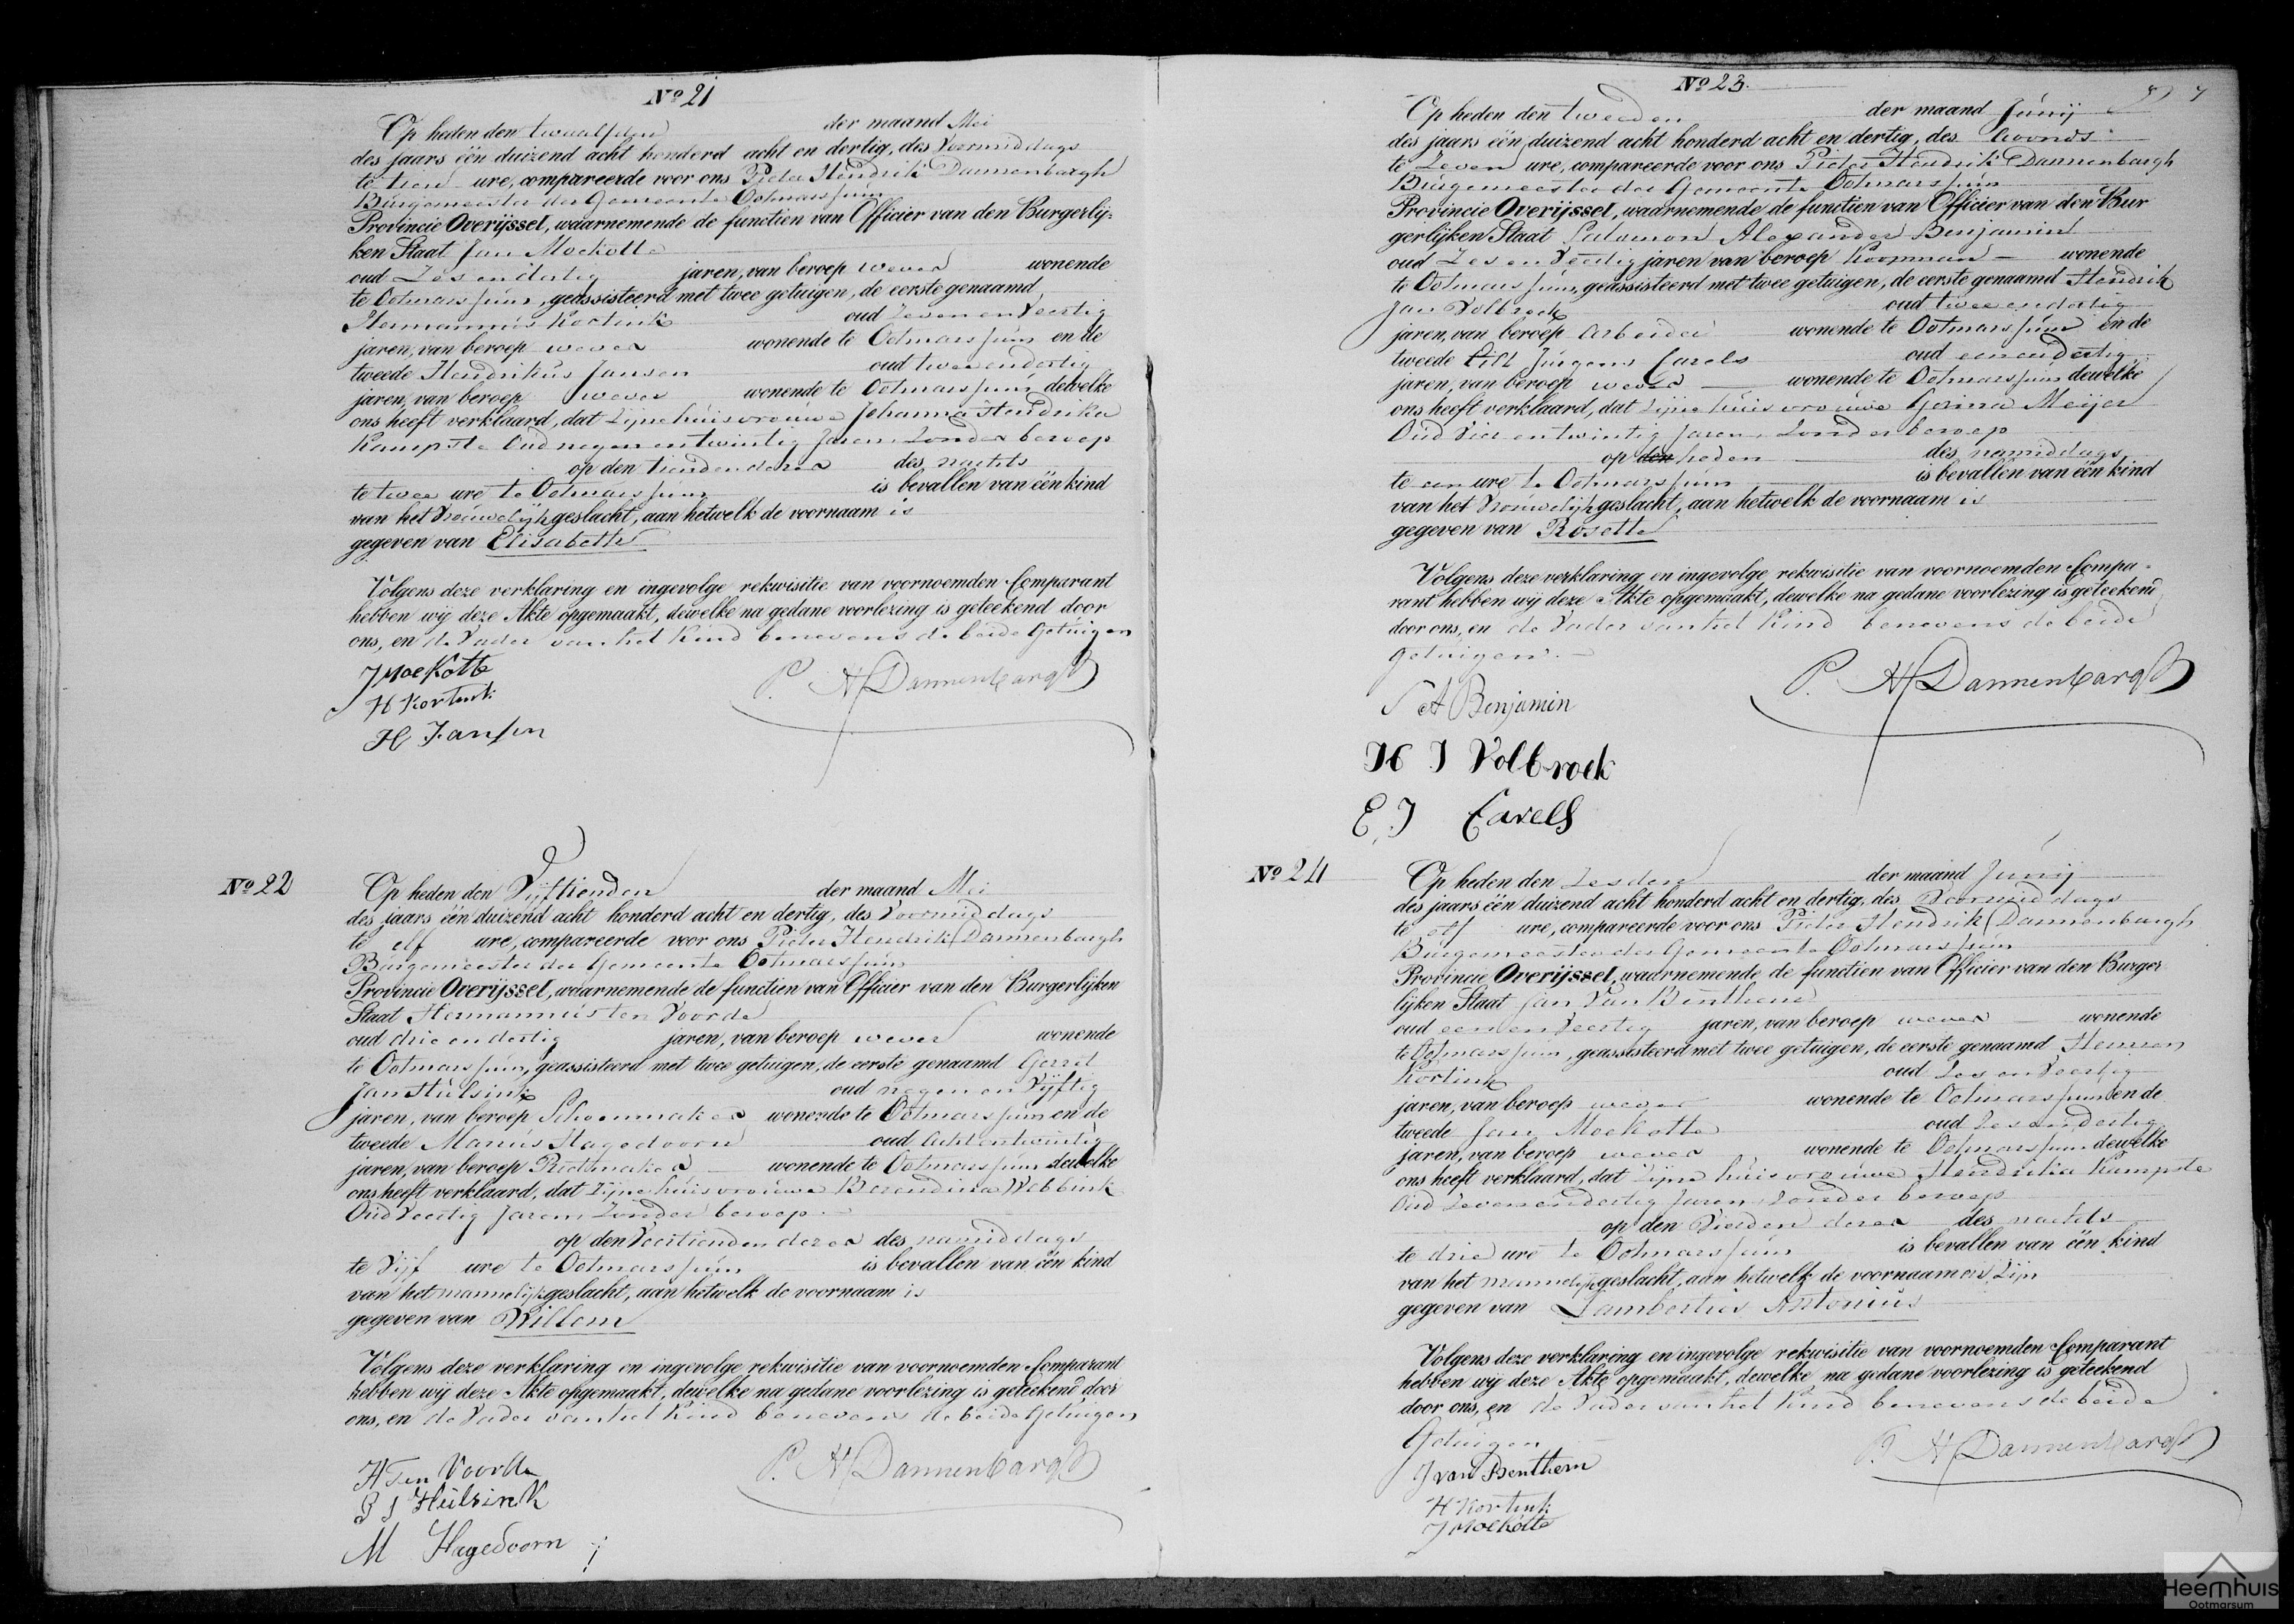 No 21
Op heden den twaalfden der maand Mei
des jaars één duizend acht honderd acht en dertig, des Voormiddags
te tien ure, compareerde voor ons Pieter Hendrik Dannenbargh
Burgemeester der Gemeente Ootmarssum
Provincie Overijssel, waarnemende de functien van Officier van den Burgerlij-
ken Staat Jan Moekotte
oud Zes en dertig jaren, van beroep wever wonende
te Ootmarssum, geassisteerd met twee getuigen, de eerste genaamd
Hermannus Kortink oud Zeven en Veertig
jaren, van beroep wever wonende te Ootmarssum en de
tweede Hendrikus Jansen oud twee en dertig
jaren, van beroep wever wonende te Ootmarssum dewelke
ons heeft verklaard, dat Zijne huisvrouwe Johanna Hendrika
Kampste Oud negen en twintig Jaren, Zonder beroep
op den tienden dezer des nachts
te twee ure te Ootmarssum is bevallen van één kind
van het Vrouwelijk geslacht, aan hetwelk de voornaam is
gegeven van Elisabeth
Volgens deze verklaring en ingevolge rekwisitie van voornoemden Comparant
hebben wij deze Akte opgemaakt, dewelke na gedane voorlezing is geteekend door
ons, en de Vader van het Kind benevens de beide Getuigen
J Moekotte
H Kortink
H Jansen
P. H Dannenbargh
No 22
Op heden den Vijftienden der maand Mei
des jaars één duizend acht honderd acht en dertig, des Voormiddags
te elf ure, compareerde voor ons Pieter Hendrik Dannenbargh
Burgemeester der Gemeente Ootmarssum
Provincie Overijssel, waarnemende de functien van Officier van den Burgerlijken
Staat Hermannus ten Voorde
oud drie en dertig jaren, van beroep wever wonende
te Ootmarssum, geassisteerd met twee getuigen, de eerste genaamd Gerret
Jan Hulsink oud negen en Vijftig
jaren, van beroep Schoenmaker wonende te Ootmarssum en de
tweede Marius Hagedoorn oud Acht en twintig
jaren, van beroep Rietmaker wonende te Ootmarssum dewelke
ons heeft verklaard, dat Zijne huisvrouwe Berendina Webbink
Oud Veertig Jaren, Zonder beroep
op den Veertienden dezer des namiddags
te Vijf ure te Ootmarssum is bevallen van één kind
van het mannelijk geslacht, aan hetwelk de voornaam is
gegeven van Willem
Volgens deze verklaring en ingevolge rekwisitie van voornoemden Comparant
hebben wij deze Akte opgemaakt, dewelke na gedane voorlezing is geteekend door
ons, en de Vader van het Kind benevens de beide Getuigen
H Ten Voorde
G J Hülsink
M Hagedoorn
P. H Dannenbargh
No 23.
Op heden den tweeden der maand Junij
des jaars één duizend acht honderd acht en dertig, des Avonds
te Zeven ure, compareerde voor ons Pieter Hendrik Dannenbargh
Burgemeester der Gemeente Ootmarssum
Provincie Overijssel, waarnemende de functien van Officier van den Bur
gerlijken Staat Salomon Alexander Benjamin
oud Zes en Veertig jaren van beroep Koopman wonende
te Ootmarssum, geassisteerd met twee getuigen, de eerste genaamd Hendrik
Jan Volbroek oud twee en dertig
jaren, van beroep Arbeider wonende te Ootmarssum en de
tweede Jurgens Carels oud een en dertig
jaren, van beroep wever wonende te Ootmarssum dewelke
ons heeft verklaard, dat Zijne huisvrouwe Meijer
Oud Vier en twintig Jaren, Zonder beroep
op den heden des namiddags
te een ure te Ootmarssum is bevallen van één kind
van het Vrouwelijk geslacht, aan hetwelk de voornaam is
gegeven van Rosette
Volgens deze verklaring en ingevolge rekwisitie van voornoemden Compa-
rant hebben wij deze Akte opgemaakt, dewelke na gedane voorlezing is geteekend
door ons, en de Vader van het Kind benevens de beide
Getuigen.
S A Benjamin
H J Volbroek
E. J Carels
P. H Dannenbargh
No 24
Op heden den Zesden der maand Junij
des jaars één duizend acht honderd acht en dertig, des Voormiddags
te elf ure, compareerde voor ons Pieter Hendrik Dannenbargh
Burgemeester der Gemeente Ootmarssum
Provincie Overijssel, waarnemende de functien van Officier van den Burger
lijken Staat Jan Van Benthem
oud een en Veertig jaren, van beroep wever wonende
te Ootmarssum, geassisteerd met twee getuigen, de eerste genaamd Herman
Kortink oud Zes en Veertig
jaren, van beroep wever wonende te Ootmarssum en de
tweede Jan Moekotte oud Zes en dertig
jaren, van beroep wever wonende te Ootmarssum dewelke
ons heeft verklaard, dat Zijne huisvrouwe Hendrika Kampste
Oud Zeven en dertig Jaren, Zonder beroep
op den Vierden dezer des nachts
te drie ure te Ootmarssum is bevallen van één kind
van het mannelijk geslacht, aan hetwelk de voornaamen Zijn
gegeven van Lambertus Antonius
Volgens deze verklaring en ingevolge rekwisitie van voornoemden Comparant
hebben wij deze Akte opgemaakt, dewelke na gedane voorlezing is geteekend
door ons, en de Vader van het Kind benevens de beide
Getuigen
J van Benthem
H Kortink
J Moekotte
P. H Dannenbargh
Heemhuis
Ootmarsum